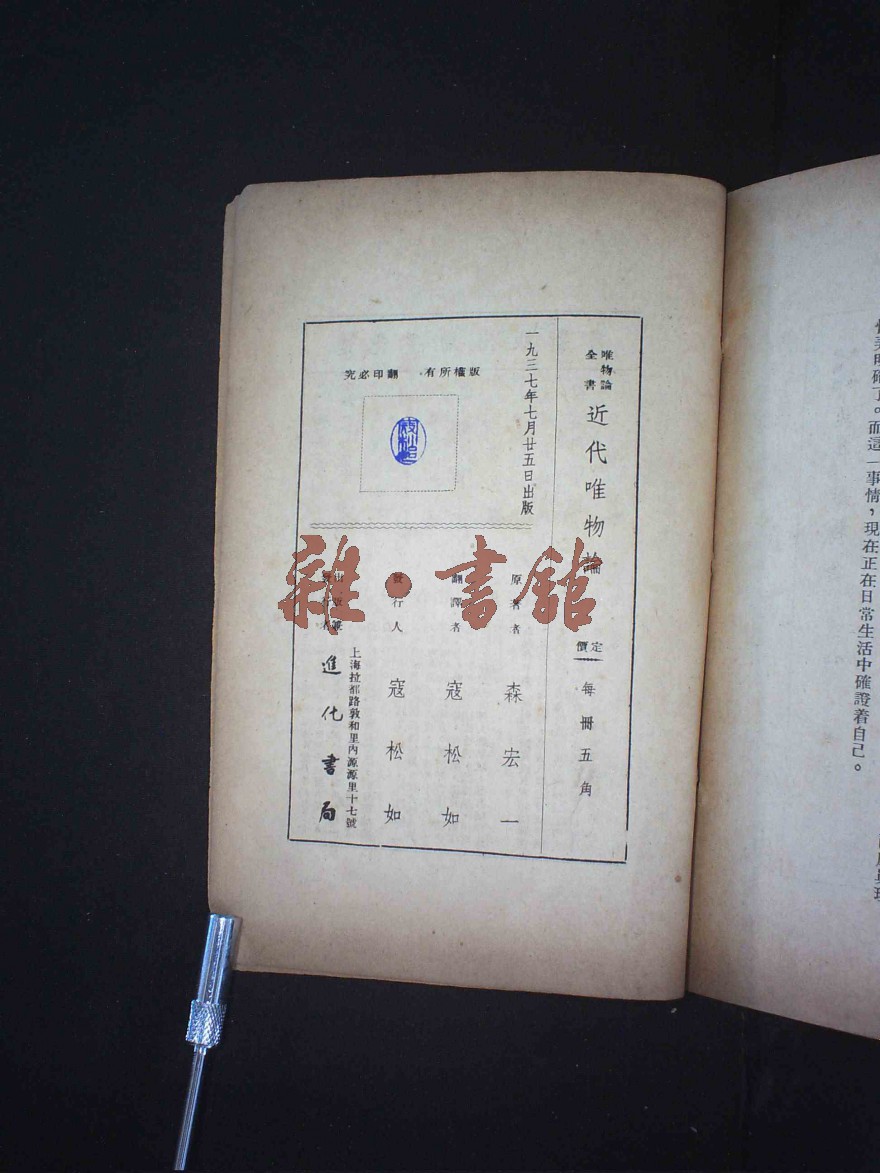 唯物論全書
近代唯物論
定價
每冊五角
一九三七年七月廿五日出版
版權所有 翻印必究
原著者 森宏一
翻譯者 寇松如
發行人 寇松如
上海拉都路敦和里內源源里十七號
進化書局
雜·書館
而這一事情，現在正在日常生活中確證着自己。